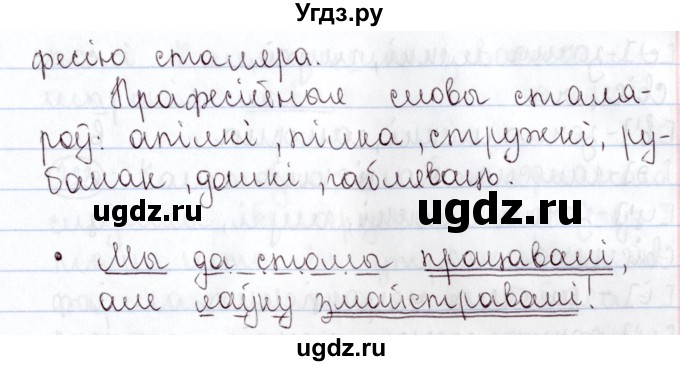 Угдз.ру
фесію сталяра.
Прафесійныя словы сталя-
роў: апілкі, пілка, стружкі, ру-
банак, дошкі, габляваць.
ugdz.ru ugdz.ru
• Мы да стомы працавалі,
але лаўку змайстравалі!
ugdz.ru